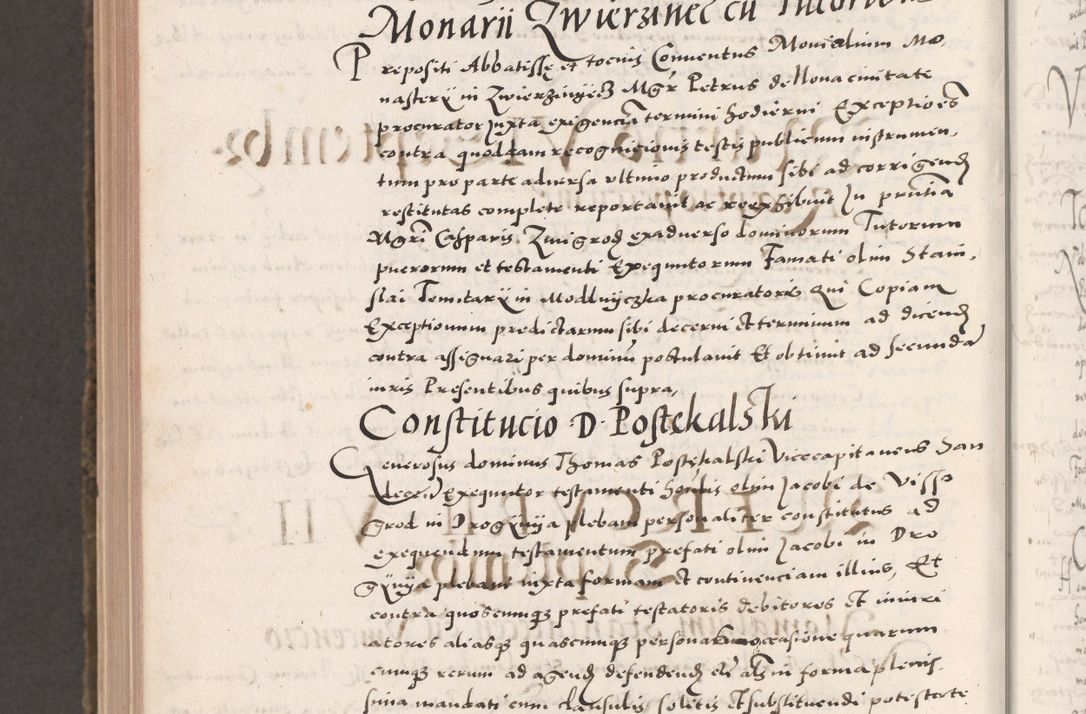 Monarii Zwierzinec cu Tutorib
Prepositi Abbatisse et tocius Conuentus Monialium Mo,
nasterÿ in Zwierzinÿecz Mgr Petrus de Noua ciuitate
procurator juxta exigenciã termini hodierni Exceptioes
contra quoddam recognicionis testis publicum instrumen,
tum pro parte aduersa vltimo productum sibi ad corrigend
restitutas complete reportauit ac reexhibuit In pruntia
Mgri Casparis Zmigrod ex aduerso dominorum Tutorum
puerorum et testamenti Exequutorum Famati olim Stani,
slai Temitarÿ in Modlnyczka procuratoris Qui Copiam
Exceptionum predictarum sibi decerni et terminum ad dicend
contra assignari per dominũ postulauit Et obtinuit ad secundã
iuris Presentibus quibus supra,
Constitucio D. Postekalski
Generosus dominus Thomas Postękalski Vicecapitaneus San
decen Exequutor testamenti honlis olim Jacobi de Visso
grod in Drogÿnÿa plebani personaliter constitutus ad
exequendum testamentum prefati olim Jacobi in Dro
gÿnÿa plebani iuxta formam et continenciam illius, Et
contra quoscumq3 prefati testatoris debitores et iniuri
atores aliasq3 quascumq3 personas occasione quarum
cumq3 rerum ad agend defendend etc als in forma plenis,
sima mandati cum clausulis solitis et substituendi potestate